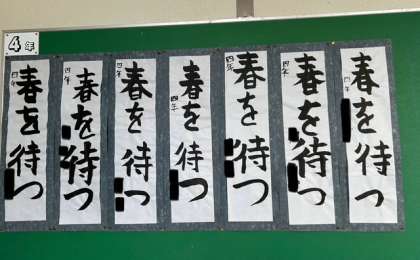 4年
春を待つ
四年
春を待つ
四年
春を待つ
四年
春を待つ
四年
春を待つ
四年
春を待つ
四年
春を待つ
四年